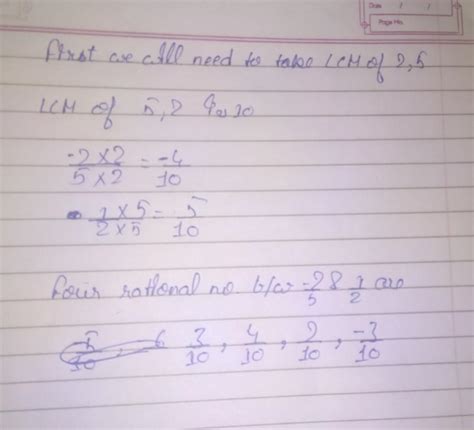 Date / /
Page No.
First we will need to take LCM of 2,5
LCM of 5,2 is 10
-2×2/5×2 = -4/10
1×5/2×5 = 5/10
four rational no. b/w -2/5 & 1/2 are
3/10, 4/10, 2/10, -3/10